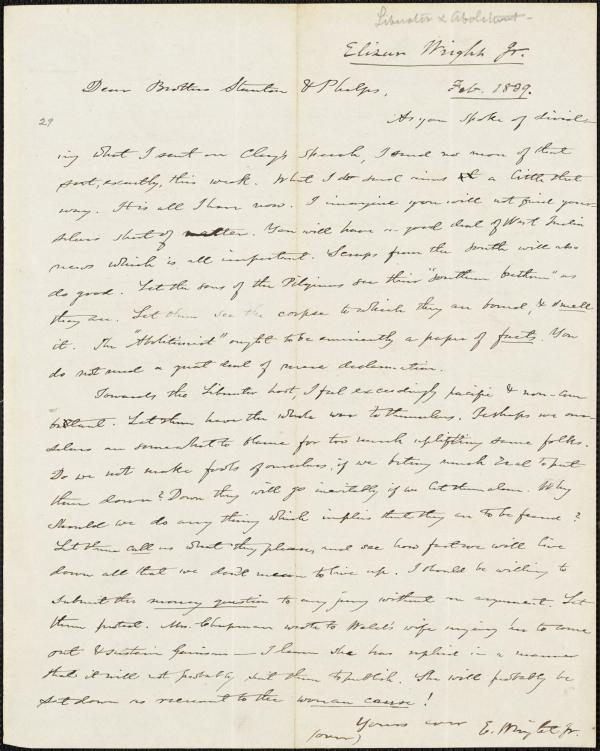 Liberator & Abolitionist -
Elizur Wright Jr.
Dear Brothers Stanton & Phelps,
Feb. 1839.
29
As you spoke of divid-
ing what I sent on Clay's Speech, I send no more of that
sort, exactly, this week. What I do send runs a little that
way. It is all I have now. I imagine you will not find your-
selves short of matter. You will have a good deal of West India
news which is all important. Scraps from the South will also
do good. Let the sons of the Pilgrims see their "Southern brethren" as
they are. Let them see the corpse to which they are bound, & smell
it. The "Abolitionist" ought to be eminently a paper of facts. You
do not need a great deal of mere declamation.
Towards the Liberator host, I feel exceedingly pacific & non-com-
batant. Let them have the whole war to themselves. Perhaps we our-
selves are somewhat to blame for too much uplifting some folks.
Do we not make fools of ourselves, if we betray much zeal to put
them down? Down they will go inevitably if we let them alone. Why
should we do any thing which implies that they are to be feared?
Let them call us what they please, and see how fast we will live
down all that we don't mean to live up. I should be willing to
submit this money question to any jury without an argument. Let
them protest. Mrs. Chapman wrote to wife urging her to come
out & sustain Garrison — I learn she has replied in a manner
that it will not probably suit them to publish. She will probably be
set down as recreant to the woman cause!
Yours ever
E. Wright Jr.
(over)